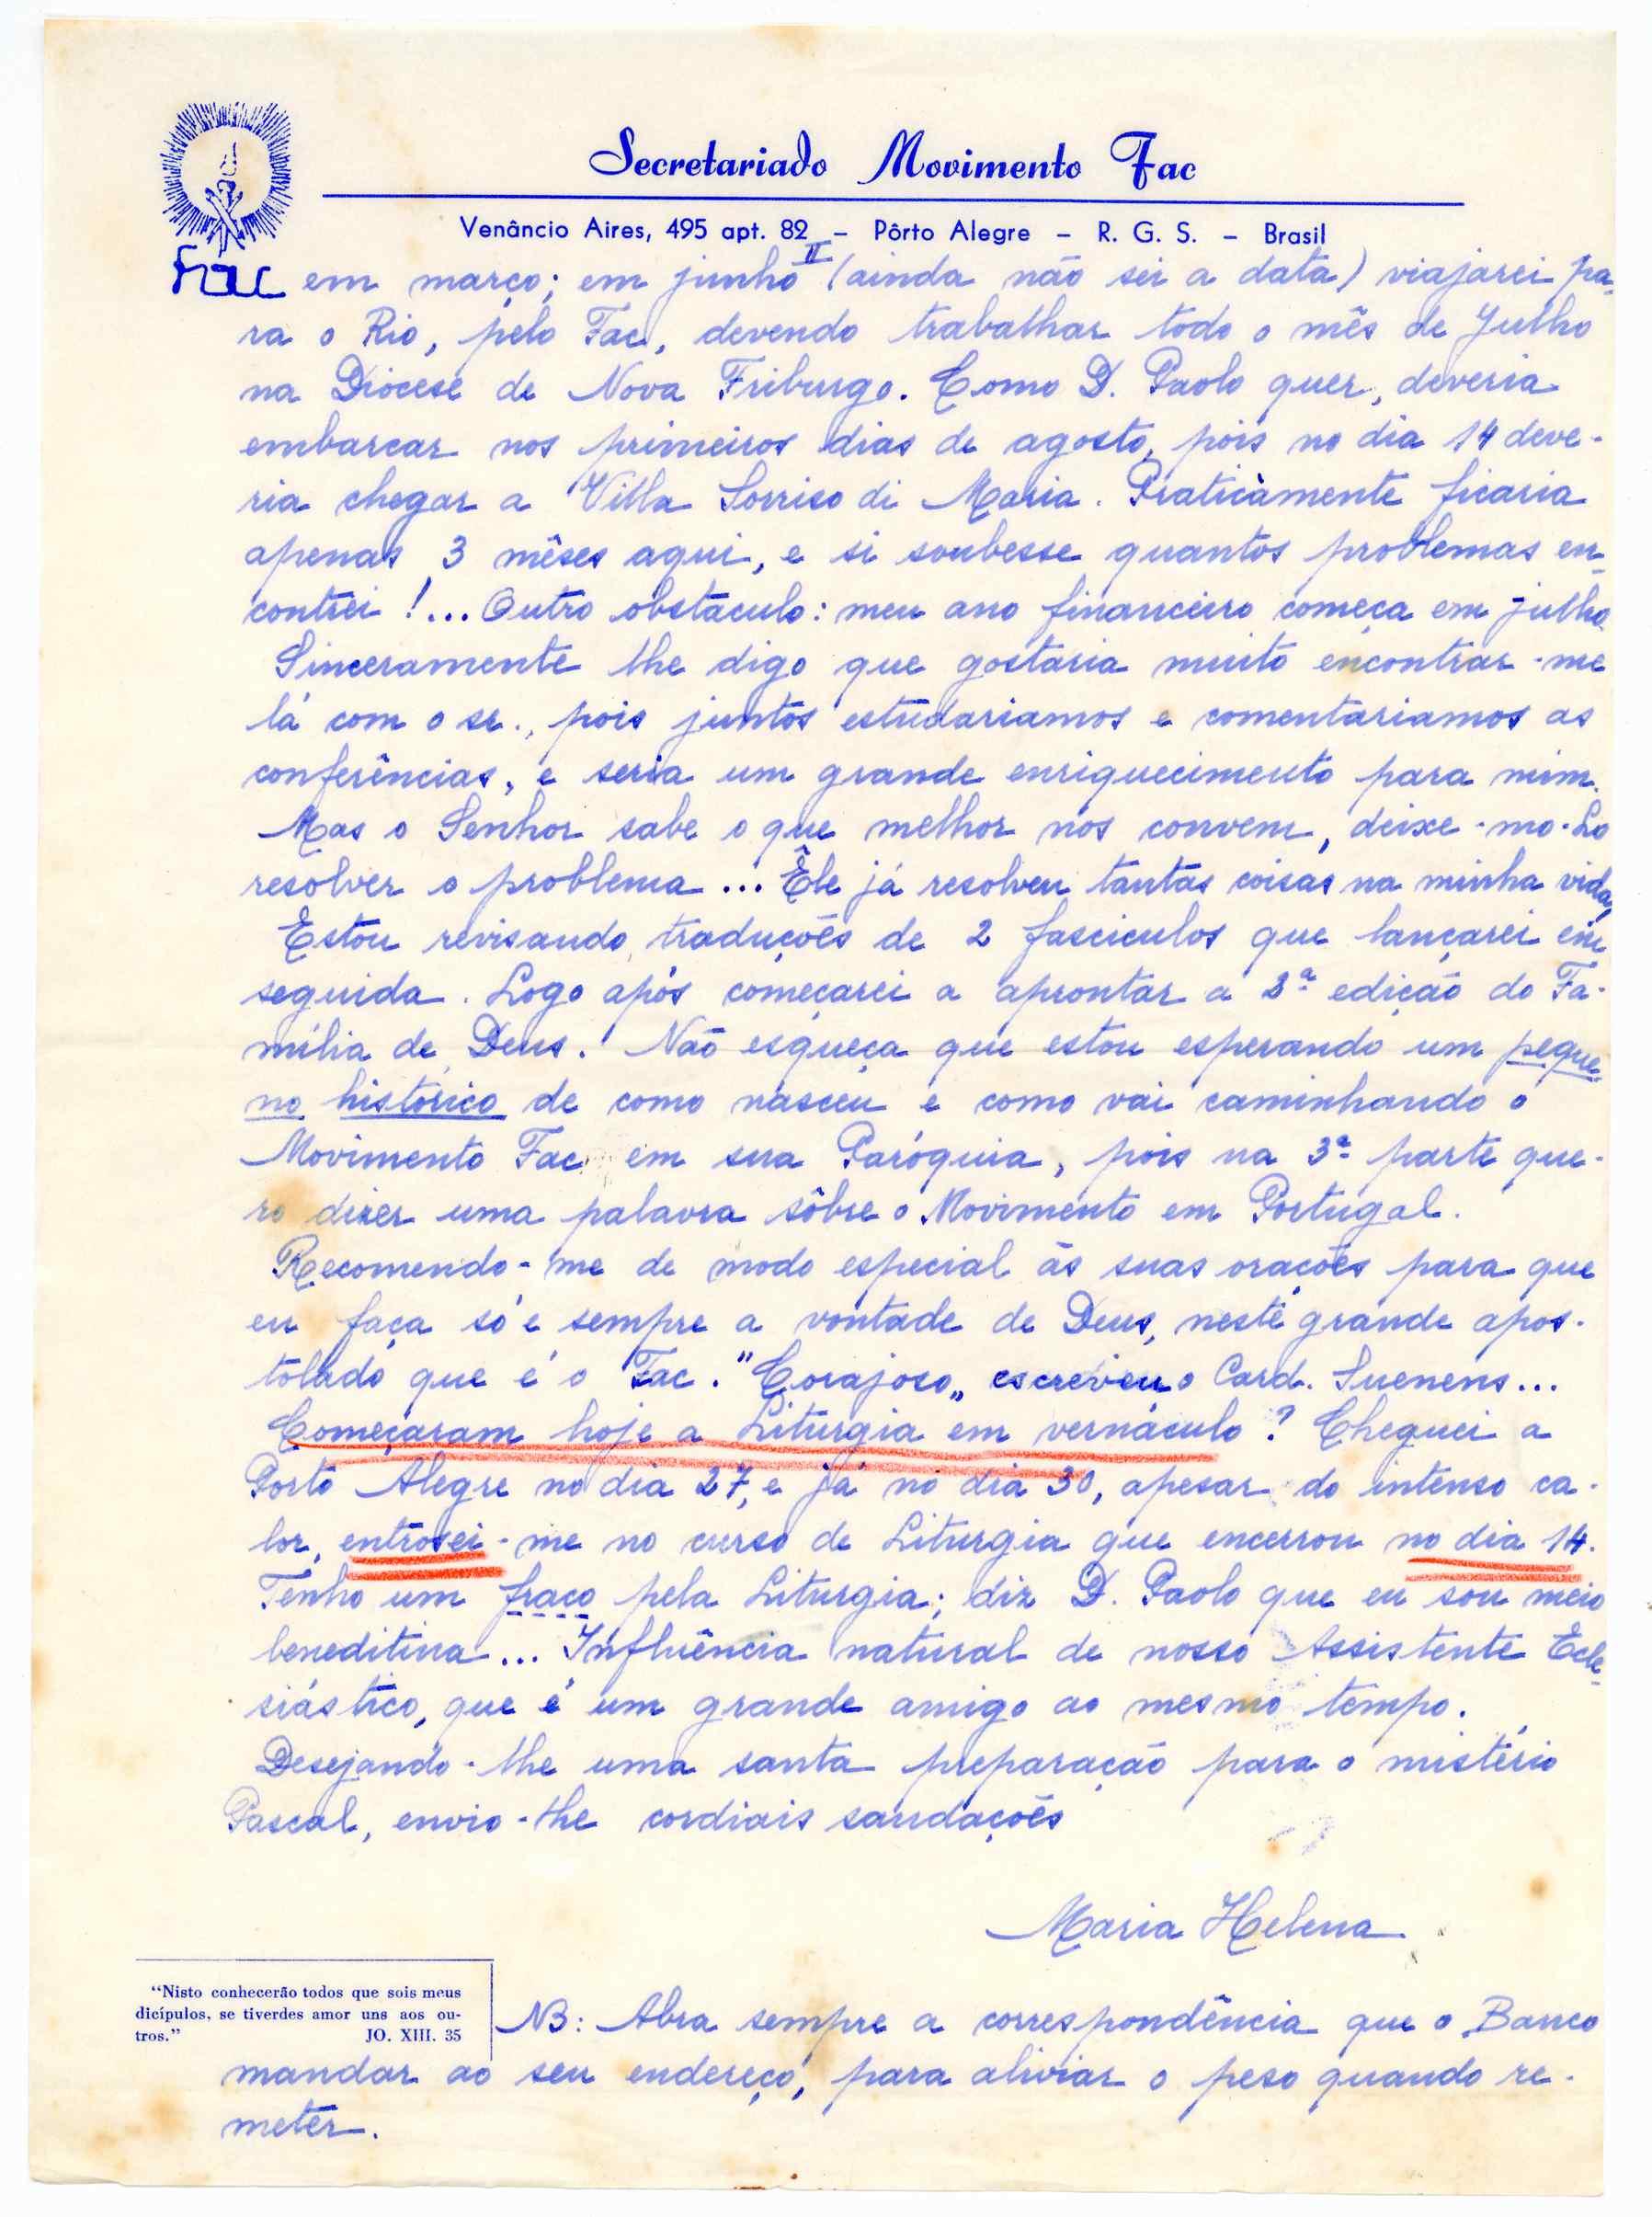 Secretariado Movimento Fac
Venâncio Aires, 495 apt. 82 – Pôrto Alegre – R. G. S. – Brasil
II
Fac
em março; em junho (ainda não sei a data) viajarei pa-
ra o Rio, pelo Fac, devendo trabalhar todo o mês de Julho
na Diocese de Nova Friburgo. Como D. Paolo quer, deveria
embarcar nos primeiros dias de agosto, pois no dia 14 deve-
ria chegar a Villa Sorriso di Maria. Praticàmente ficaria
apenas 3 mêses aqui, e si soubesse quantos problemas en-
contrei!... Outro obstáculo: meu ano financeiro começa em julho.
Sinceramente lhe digo que gostaria muito encontrar-me
lá com o sr., pois juntos estudariamos e comentariamos as
conferências, e seria um grande enriquecimento para mim.
Mas o Senhor sabe o que melhor nos convem, deixe-mo-Lo
resolver o problema... Êle já resolveu tantas coisas na minha vida,
Estou revisando traduções de 2 fasciculos que lançarei em
seguida. Logo após começarei a aprontar a 2ª edição do Fa-
mília de Deus. Não esqueça que estou esperando um peque-
no histórico de como nasceu e como vai caminhando o
Movimento Fac em sua Paróquia, pois na 3ª parte que-
ro dizer uma palavra sôbre o Movimento em Portugal.
Recomendo-me de modo especial ás suas orações para que
eu faça só e sempre a vontade de Deus, neste grande apos-
tolado que é o Fac. "Corajoso„ escreveu o Card. Suenens...
Começaram hoje a Liturgia em vernáculo? Cheguei a
Porto Alegre no dia 27, e já no dia 30, apesar do intenso ca-
lor, entrosei-me no curso de Liturgia que encerrou no dia 14.
Tenho um fraco pela Liturgia; diz D. Paolo que eu sou meio
beneditina... Influência natural de nosso Assistente Ecle-
siástico, que é um grande amigo ao mesmo tempo.
Desejando-lhe uma santa preparação para o mistério
Pascal, envio-lhe cordiais saudações
Maria Helena
"Nisto conhecerão todos que sois meus
dicípulos, se tiverdes amor uns aos ou-
tros." JO. XIII. 35
NB: Abra sempre a correspondência que o Banco
mandar ao seu endereço, para aliviar o peso quando re-
meter.